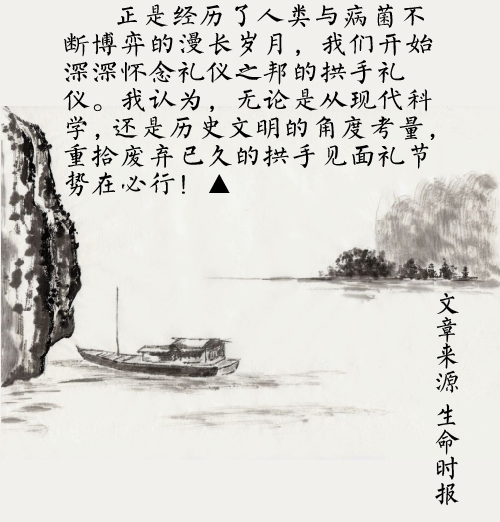 正是经历了人类与病菌不
断博弈的漫长岁月，我们开始
深深怀念礼仪之邦的拱手礼
仪。我认为，无论是从现代科
学，还是历史文明的角度考量，
重拾废弃已久的拱手见面礼节
势在必行！▲
文章来源 生命时报